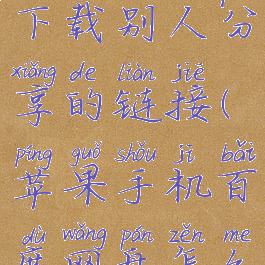 下载别人分
xiǎng de liàn jiē
享的链接(
píng guǒ shǒu jī bǎi
苹果手机百
dù wǎng pán zěn me
度网盘怎么